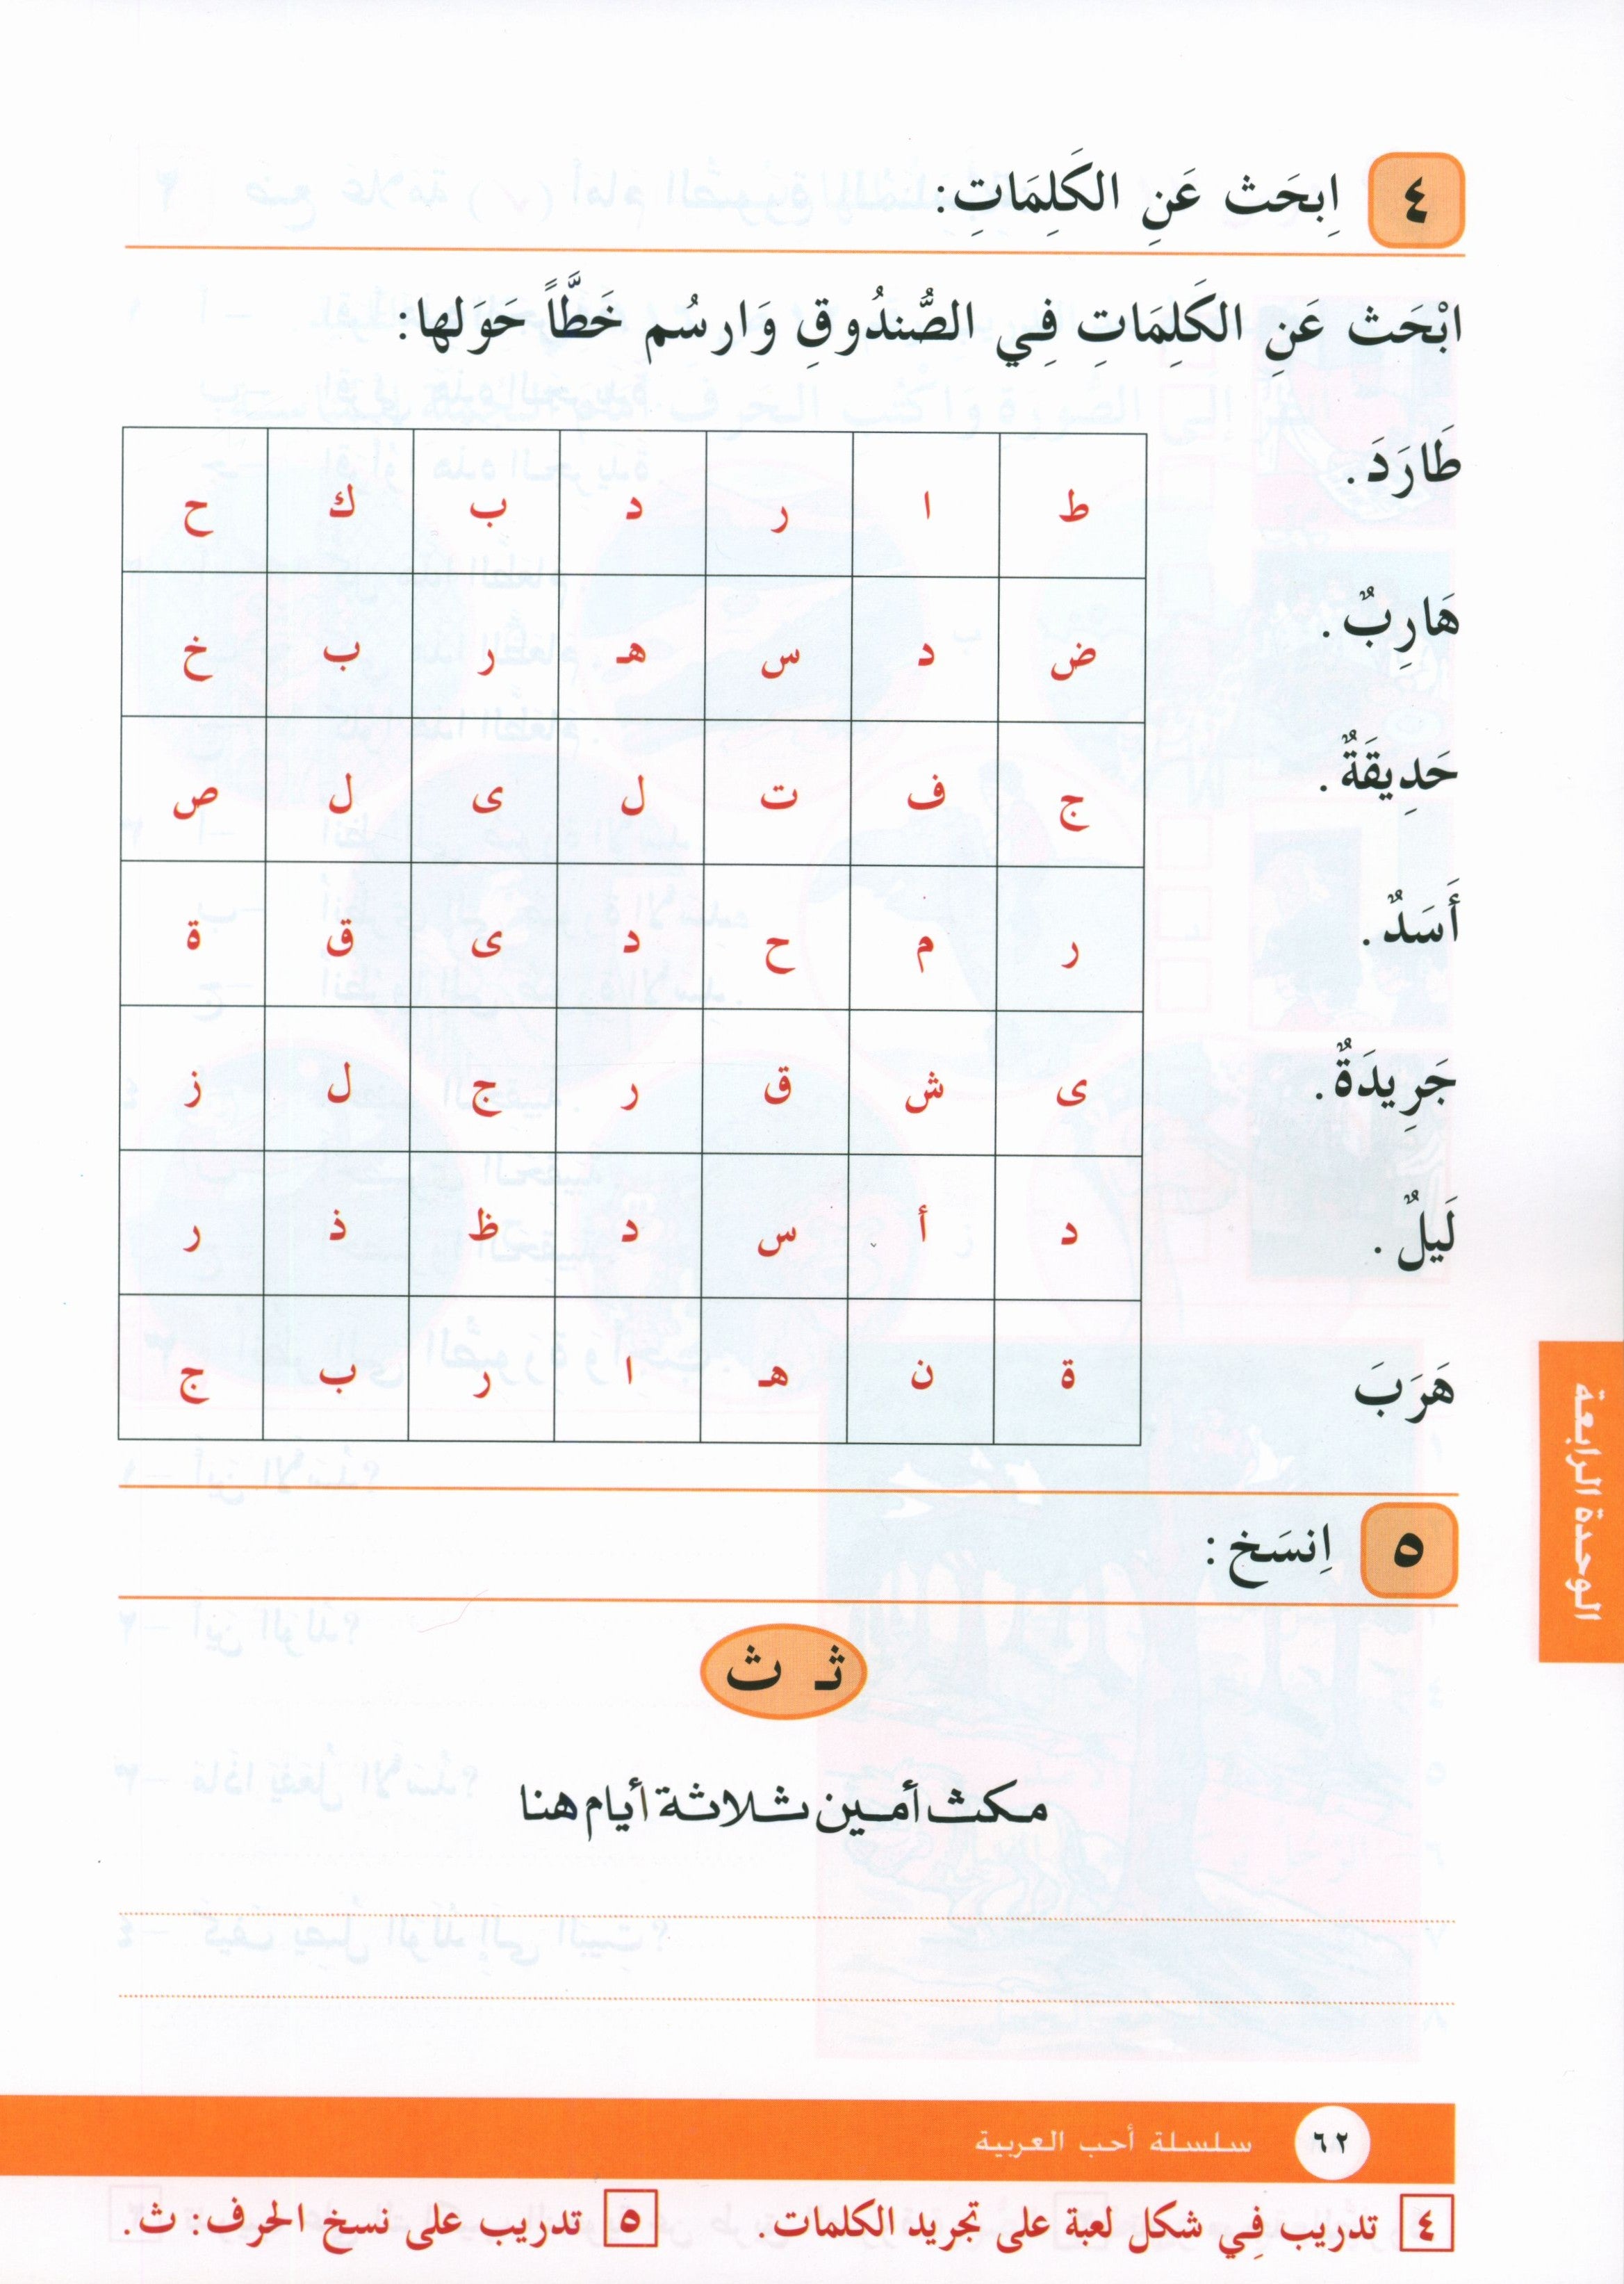 ٤ اِبحَث عَنِ الكَلِمَاتِ:
ابْحَث عَنِ الكَلِمَاتِ فِي الصُّندُوقِ وَارسُم خَطَّاً حَوَلها:
طَارَدَ.
هَارِبٌ.
حَدِيقَةٌ.
أَسَدٌ.
جَرِيدَةٌ.
لَيلٌ.
هَرَبَ
ط ا ر د ب ك ح
ض د س هـ ر ب خ
ج ف ت ل ى ل ص
ر م ح د ى ق ة
ى ش ق ر ج ل ز
د أ س د ظ ذ ر
ة ن هـ ا ر ب ج
٥ اِنسَخ:
ثـ ث
مكث أمين ثلاثة أيام هنا
الوحدة الرابعة
٦٢ سلسلة أحب العربية
٤ تدريب فِي شكل لعبة على تجريد الكلمات. ٥ تدريب على نسخ الحرف: ث.